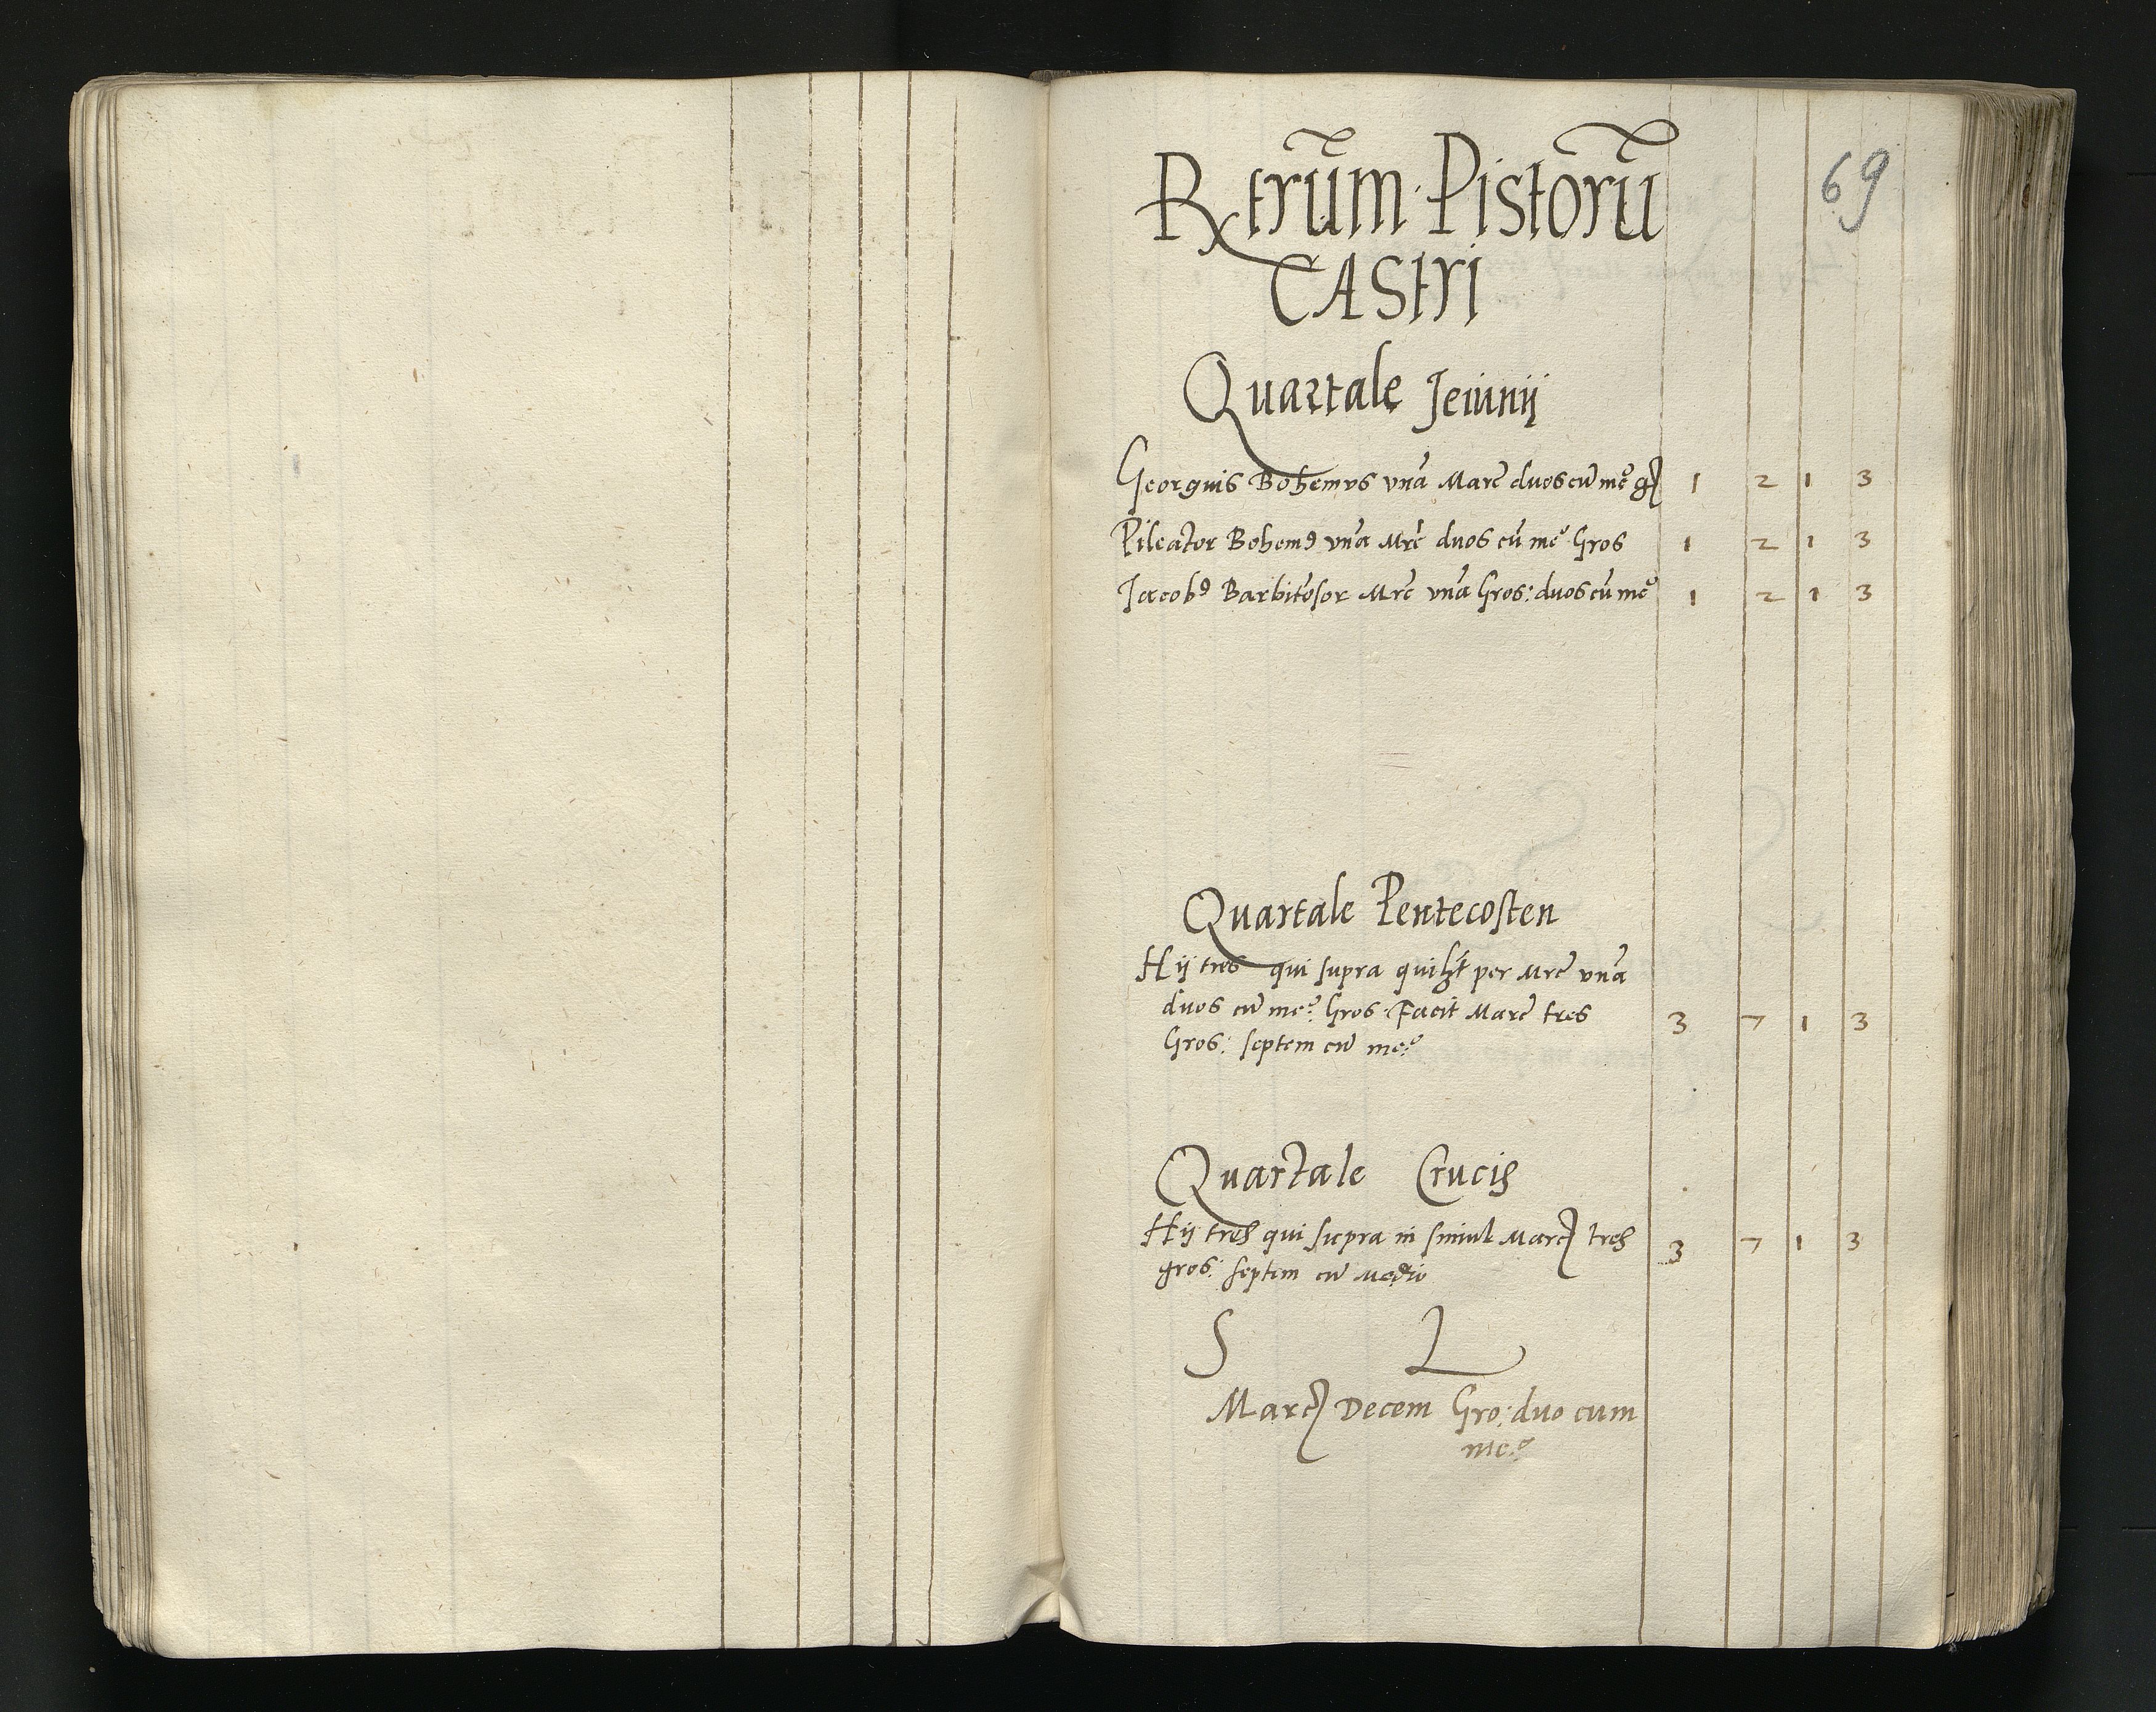 69
Rtrũm Pistorũ
CAStri
Quartale Jeiunij
Georgius Bohemvs vna Marc duos cũ me gr 1 2 1 3
Pileator Bohemꝯ vna Mrc duos cũ meº Gros 1 2 1 3
Jacobꝯ Barbitõsor Mrc vna Gros: duos cũ meº 1 2 1 3
Quartale Pentecosten
Hij tres qui supra quilꝫt per Mrc vna
duos cũ me:º Gros Facit Marc tres 3 7 1 3
Gros: septem cũ me:º
Quartale Crucis
Hij tres qui supra in simul Marc tres 3 7 1 3
gros: septem cũ Medio
S L
Marc Decem Gro: duo cum
me:º